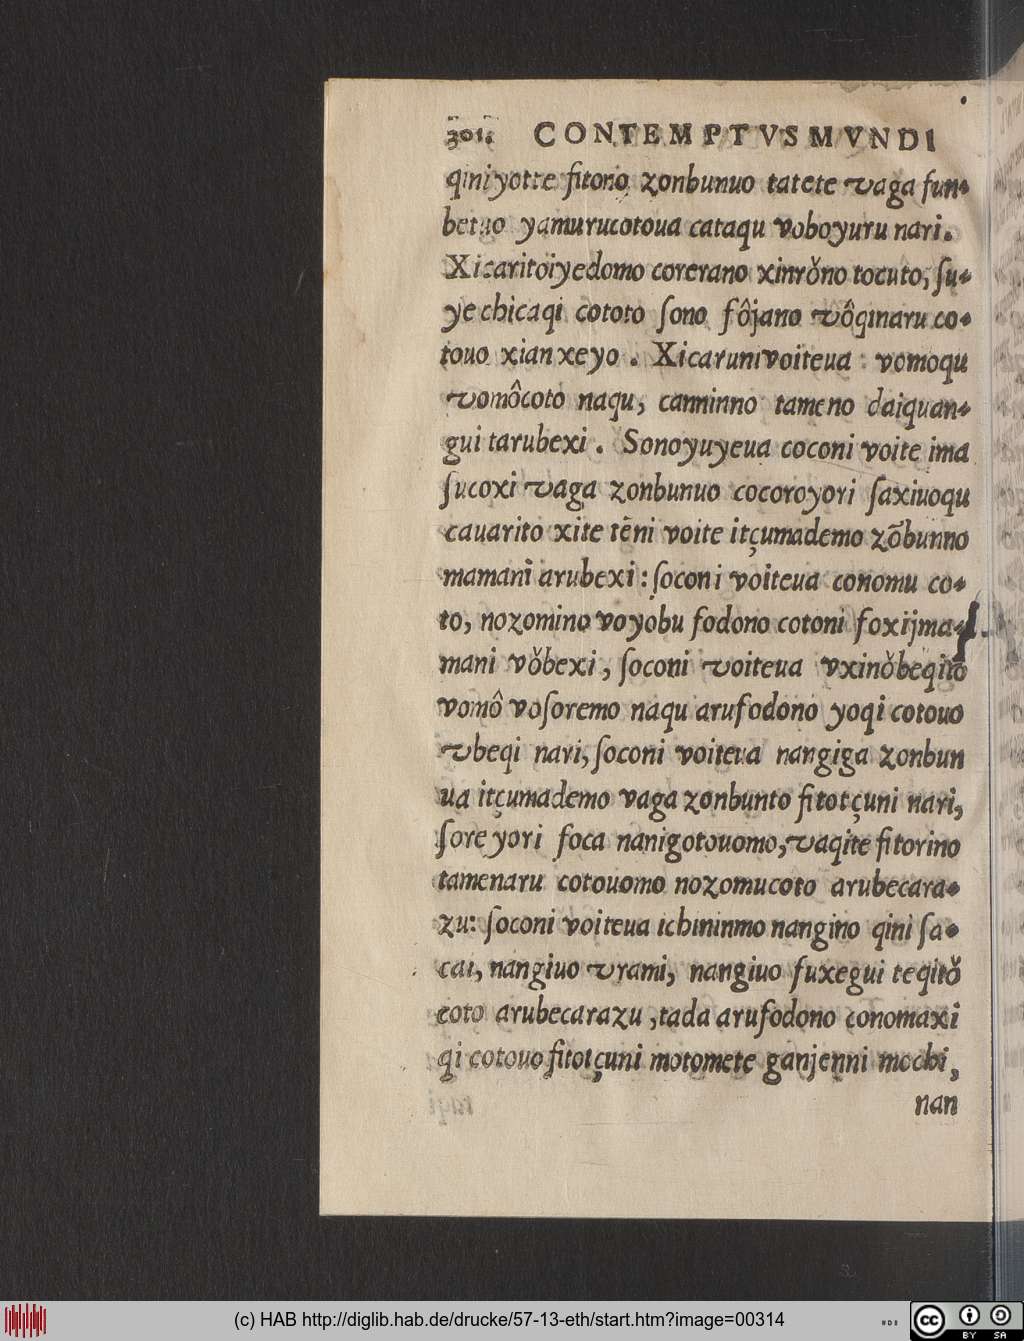 301. CONTEMPTVS MVNDI
qini yotte fitono zonbunuo tatete vaga fun-
betuo yamurucotoua cataqu voboyuru nari.
Xicaritoiyedomo corerano xinrǒno tocuto, ſu-
ye chicaqi cototo ſono fôjano vôqinaru co-
touo xianxeyo. Xicaruni voiteua vomoqu
vomôcoto naqu, canninno tameno daiquan-
gui tarubexi. Sonoyuyeua coconi voite ima
ſucoxi vaga zonbunuo cocoroyori ſaxiuoqu
cauarito xite tẽni voite itçumademo zõbunno
mamanì arubexi: ſoconi voiteua conomu co-
to, nozomino voyobu fodono cotoni foxijma-
mani vǒbexi, ſoconi voiteua vxinǒbeqito
vomô voſoremo naqu arufodono yoqi cotouo
vbeqi nari, ſoconi voiteua nangiga zonbun
ua itçumademo vaga zonbunto fitotçuni nari,
ſore yori foca nanigotouomo, vaqite fitorino
tamenaru cotouomo nozomucoto arubecara-
zu: ſoconi voiteua ichininmo nangino qini ſa-
cai, nangiuo vrami, nangiuo fuxegui teqitǒ
coto arubecarazu, tada arufodono conomaxi
qi cotouo fitotçuni motomete ganjenni mochi,
nan
(c) HAB http://diglib.hab.de/drucke/57-13-eth/start.htm?image=00314
cc BY SA